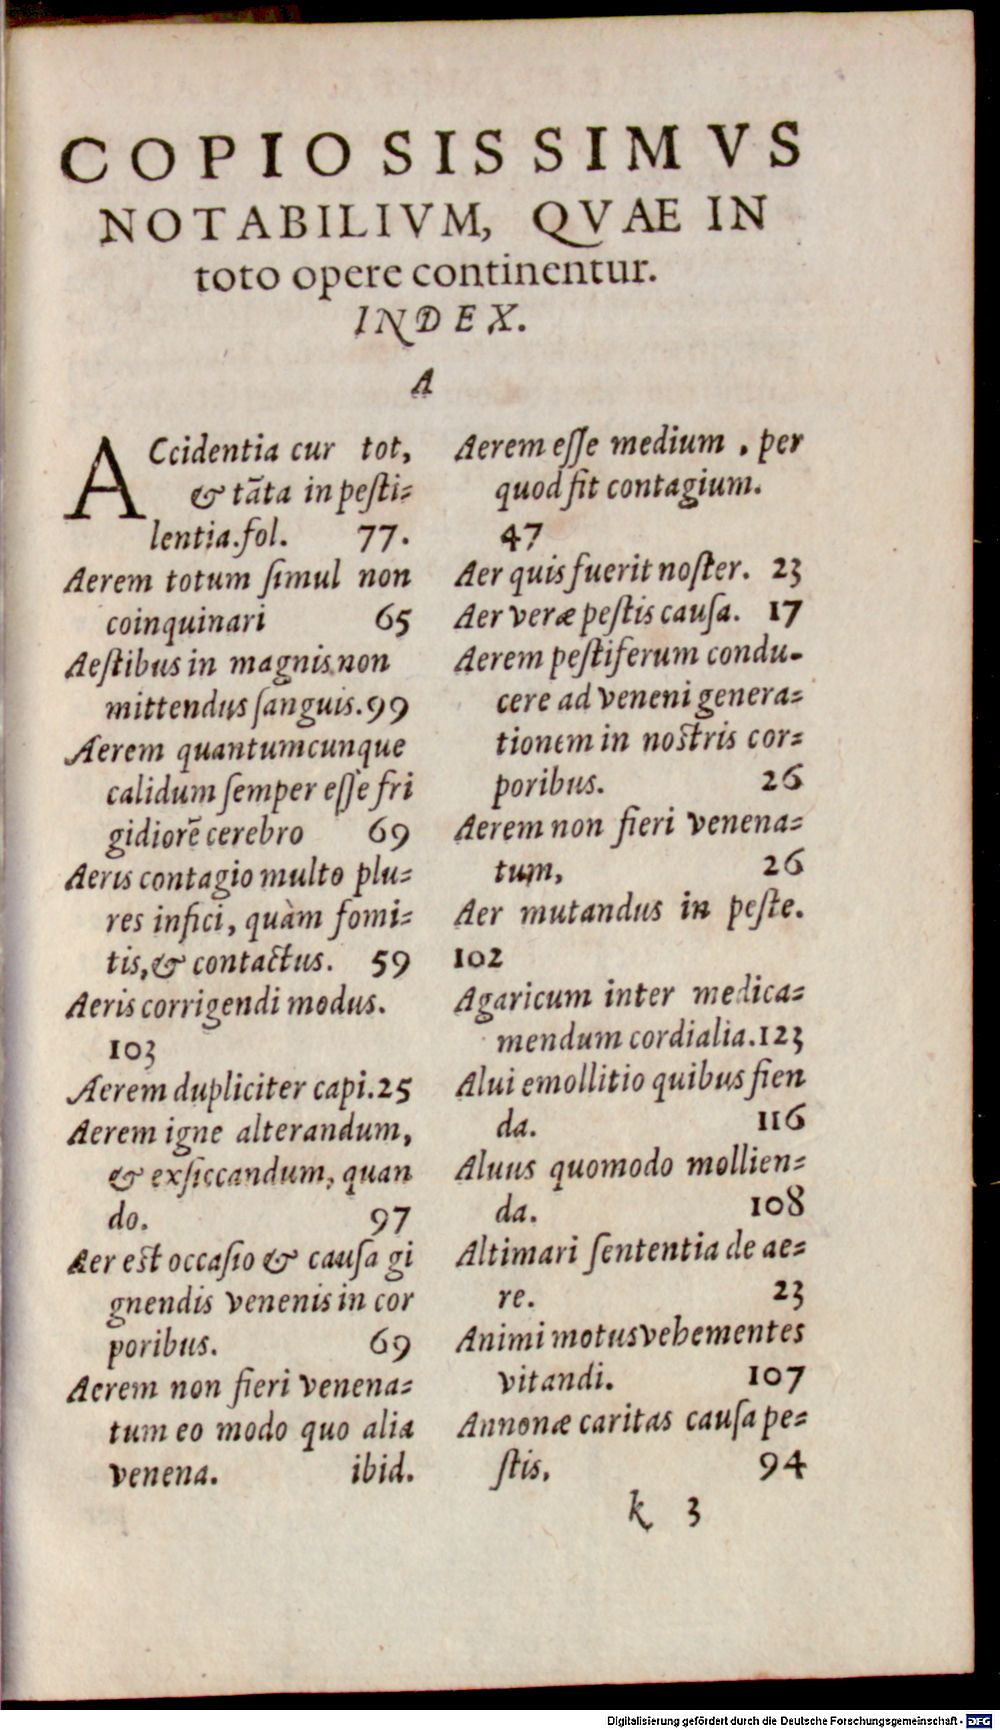 COPIOSISSIMVS
NOTABILIVM, QVAE IN
toto opere continentur.
INDEX.
A
ACcidentia cur tot,
& tãta in pesti=
lentia.fol. 77.
Aerem totum simul non
coinquinari 65
Aestibus in magnis non
mittendus sanguis.99
Aerem quantumcunque
calidum semper esse fri
gidiorẽ cerebro 69
Aeris contagio multo plu=
res infici, quàm fomi=
tis,& contactus. 59
Aeris corrigendi modus.
103
Aerem dupliciter capi.25
Aerem igne alterandum,
& exsiccandum, quan
do. 97
Aer est occasio & causa gi
gnendis venenis in cor
poribus. 69
Aerem non fieri venena=
tum eo modo quo alia
venena. ibid.
Aerem esse medium , per
quod fit contagium.
47
Aer quis fuerit noster. 23
Aer veræ pestis causa. 17
Aerem pestiferum condu-
cere ad veneni genera=
tionem in nostris cor=
poribus. 26
Aerem non fieri venena=
tum, 26
Aer mutandus in peste.
102
Agaricum inter medica=
mendum cordialia.123
Alui emollitio quibus fien
da. 116
Aluus quomodo mollien=
da. 108
Altimari sententia de ae=
re. 23
Animi motus vehementes
vitandi. 107
Annonæ caritas causa pe=
stis, 94
k 3
Digitalisierung gefördert durch die Deutsche Forschungsgemeinschaft - DFG